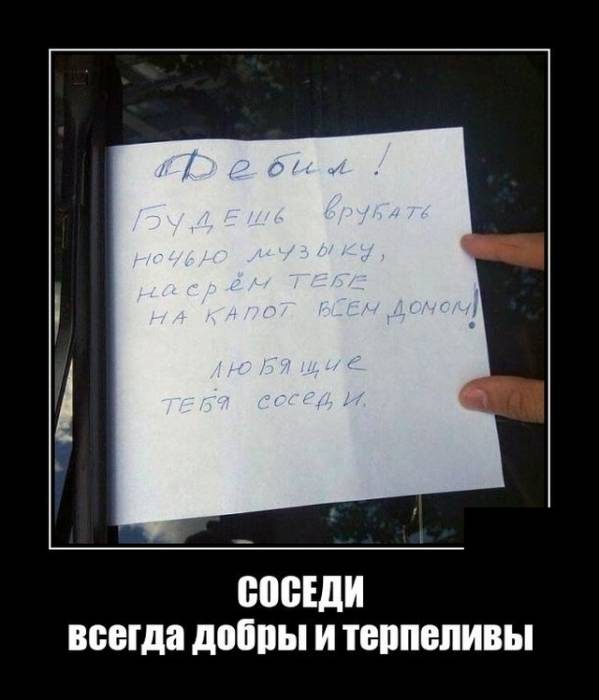 Дебил!
Будешь врубать
ночью музыку,
насрём тебе
на капот всем домом!
любящие
тебя соседи.
СОСЕДИ
всегда добры и терпеливы